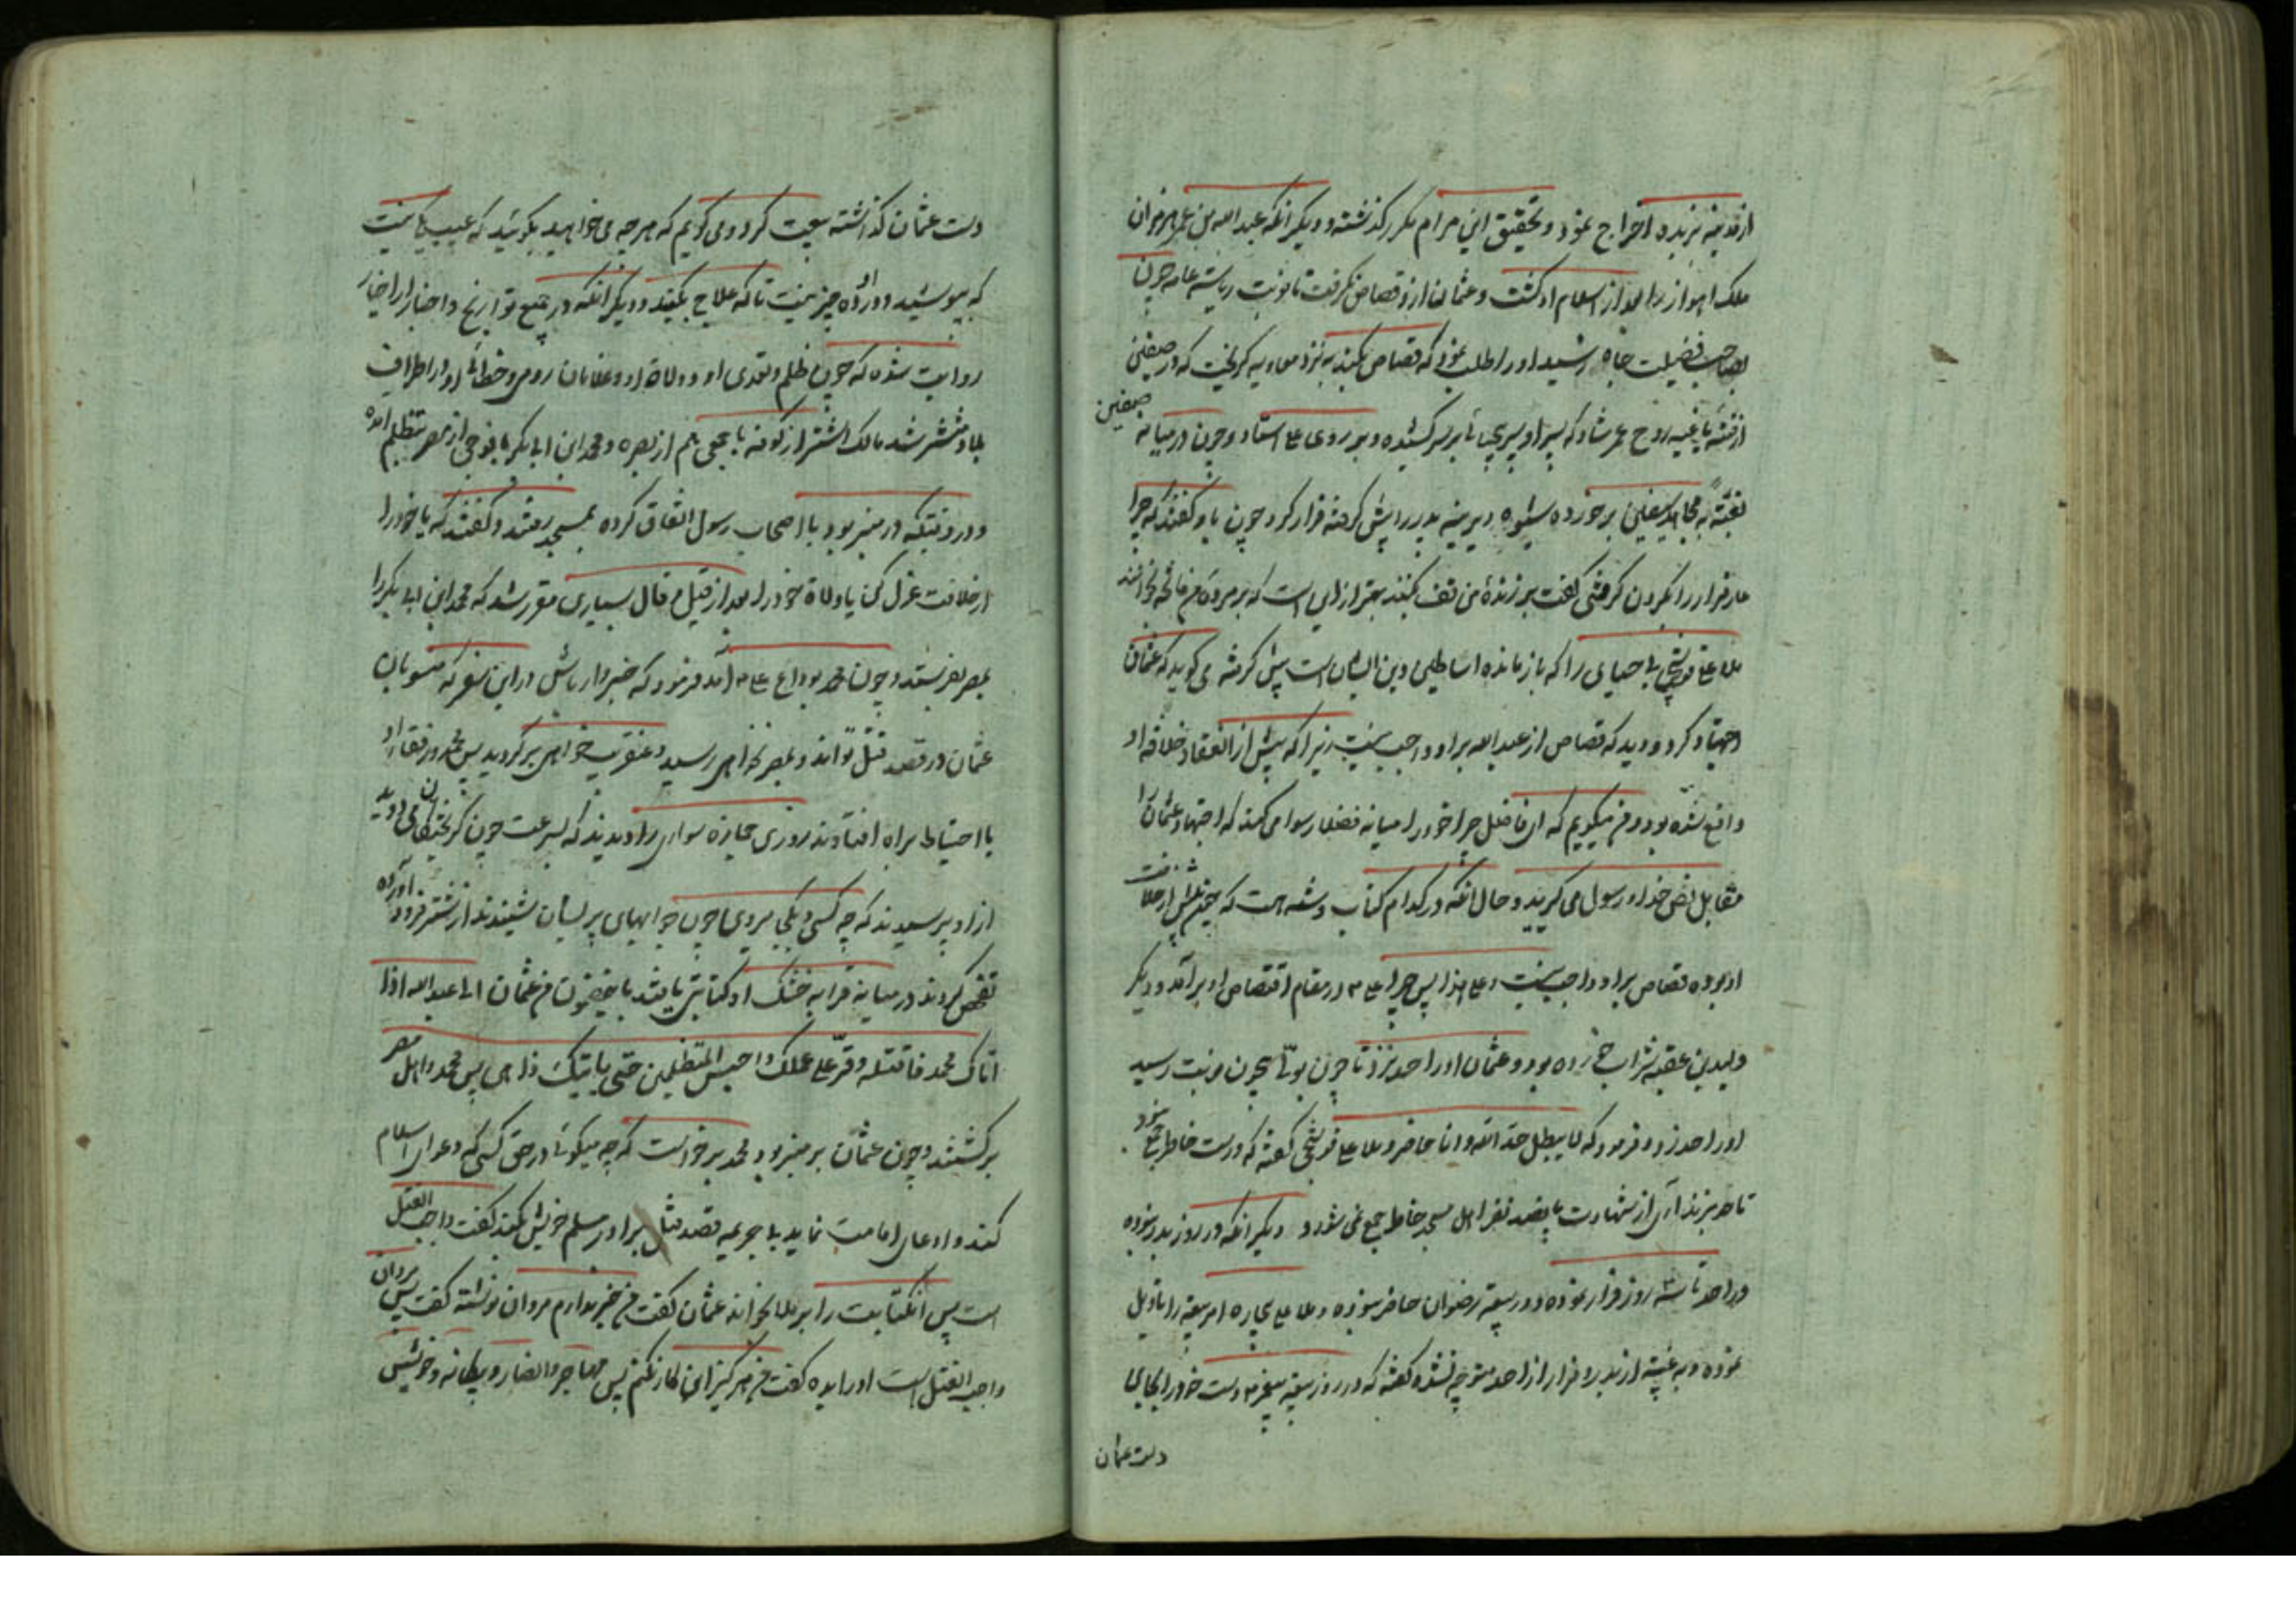 از مدینه بربده اخراج نمود و تحقیق این مرام مکرر گذشته و دیگر انکه عبد الله بن عمر هرمزان
ملک اهواز را بعد از اسلام او کشت و عثمان ازو قصاص نکرفت تا نوبت ریاسته عامه چون
بصاحب فضیلت جاه رسید اورا طلب نمود که قصاص بکند به نزد معاویه کریخت که در صفین
از فئه باغیه روح عمر شاد که پسر او بر سر کشیده و بر روی علی استاد و چون در میانه صفین
برخورده شیوه دیرینه پدر را پیش کرفته فرار کرد چون باو کفتند که چرا
عار فرار را بکردن کرفتی کفت بر زنده من تف کنند بهتر از این است که بر مرده من فاتحه بخوانند
ملا علی قوشچی بی حیایی را که باز مانده اساطین دین ایشان است پیش کرفته می کوید که عثمان
اجتهاد کرد و دید که قصاص از عبد الله براو واجب نیست زیرا که پیش از انعقاد خلافه او
واقع شده بود و من میکویم که این فاضل چرا خود را میانه فضلا رسوا میکند که اجتهاد عثمان را
مقابل نص خدا و رسول می کیرند و حال انکه در کدام کتاب و سنه است که پیش از خلافت
او بوده قصاص براو واجب نیست و علی هذا پس چرا علی ۴ در مقام اقتصاص او برآمد و دیگر
ولید بن عقبه شراب خورده بود و عثمان اورا حد نزد تا چون نوبت رسید
اورا حد زد و فرمود که لا یبطل حد الله و انا حاضر و ملا علی قوشچی کفته که درست خاطر جمع نبود
تا حد بزند آری از شهادت پانصد نفر اهل مسجد خاطر جمع نمی شود و دیگر انکه در روز بدر نبوده
و در احد تا سه روز فرار نموده و در بیعة رضوان حاضر نبوده و ملا علی بیچاره امر بیعة را تاویل
نموده و به غیبة از بدر و فرار از احد متوجه نشده کفته که در روز بیعة پیغمبر دست خود را بجای
دست عثمان
دست عثمان کذاشته بیعت کرد و می کویم که هرچه می خواهید بکوئید که عیب نیست
که بپوشید و درد چیزی نیست تا که علاج بکنید و دیگر انکه در جمیع تواریخ و اخبار
روایت شده که چون ظلم و تعدی او و ولاة او در اطراف
بلاد منتشر شد مالک اشتر از کوفه با جمعی از بصره و محمد ابن ابی بکر با فوجی از مصر متظلم آمده
و در وقتیکه در منبر بود با اصحاب رسول اتفاق کرده بمسجد رفتند و کفتند که یا خود را
از خلافت عزل کن یا ولاة خود را بعد از قیل و قال بسیاری مقرر شد که محمد ابن ابی بکر را
بمصر بفرستد و چون محمد بوداع علی ۴ آمد فرمود که خبردار باش در این سفر که منسوبان
عثمان در قصد قتل تو اند و بمصر نخواهی رسید و عنقریب خواهی برگردید پس محمد و رفقای او
با احتیاط براه افتادند روزی جمازه سواری را دیدند که بسرعت چون کریختکان می دوید
از او پرسیدند که چه کسی و بکجا میروی چون جوابهای پریشان شنیدند از شتر فرود آورده
تفحص کردند در میانه قرابه خشک او کتابتی یافتند باین مضمون من عثمان الی عبد الله اذا
اتاک محمد فاقتله و قرّ علی عملک و احبس المتظلمین حتی یاتیک رأیی پس محمد و اهل مصر
برکشتند و چون عثمان بر منبر بود محمد برخواست که چه میکوئی در حق کسی که دعوای اسلام
کند و ادعای امامت نماید بی جریمه قصد قتل برادر مسلم خویش بکند کفت واجب القتل
است پس انکتابت را برملا بخواند عثمان کفت من خبر ندارم مروان نوشته کفت پس مروان
واجب القتل است اورا بده کفت من هرکز این کار نکنم پس مهاجر و انصار و بیکانه و خویش